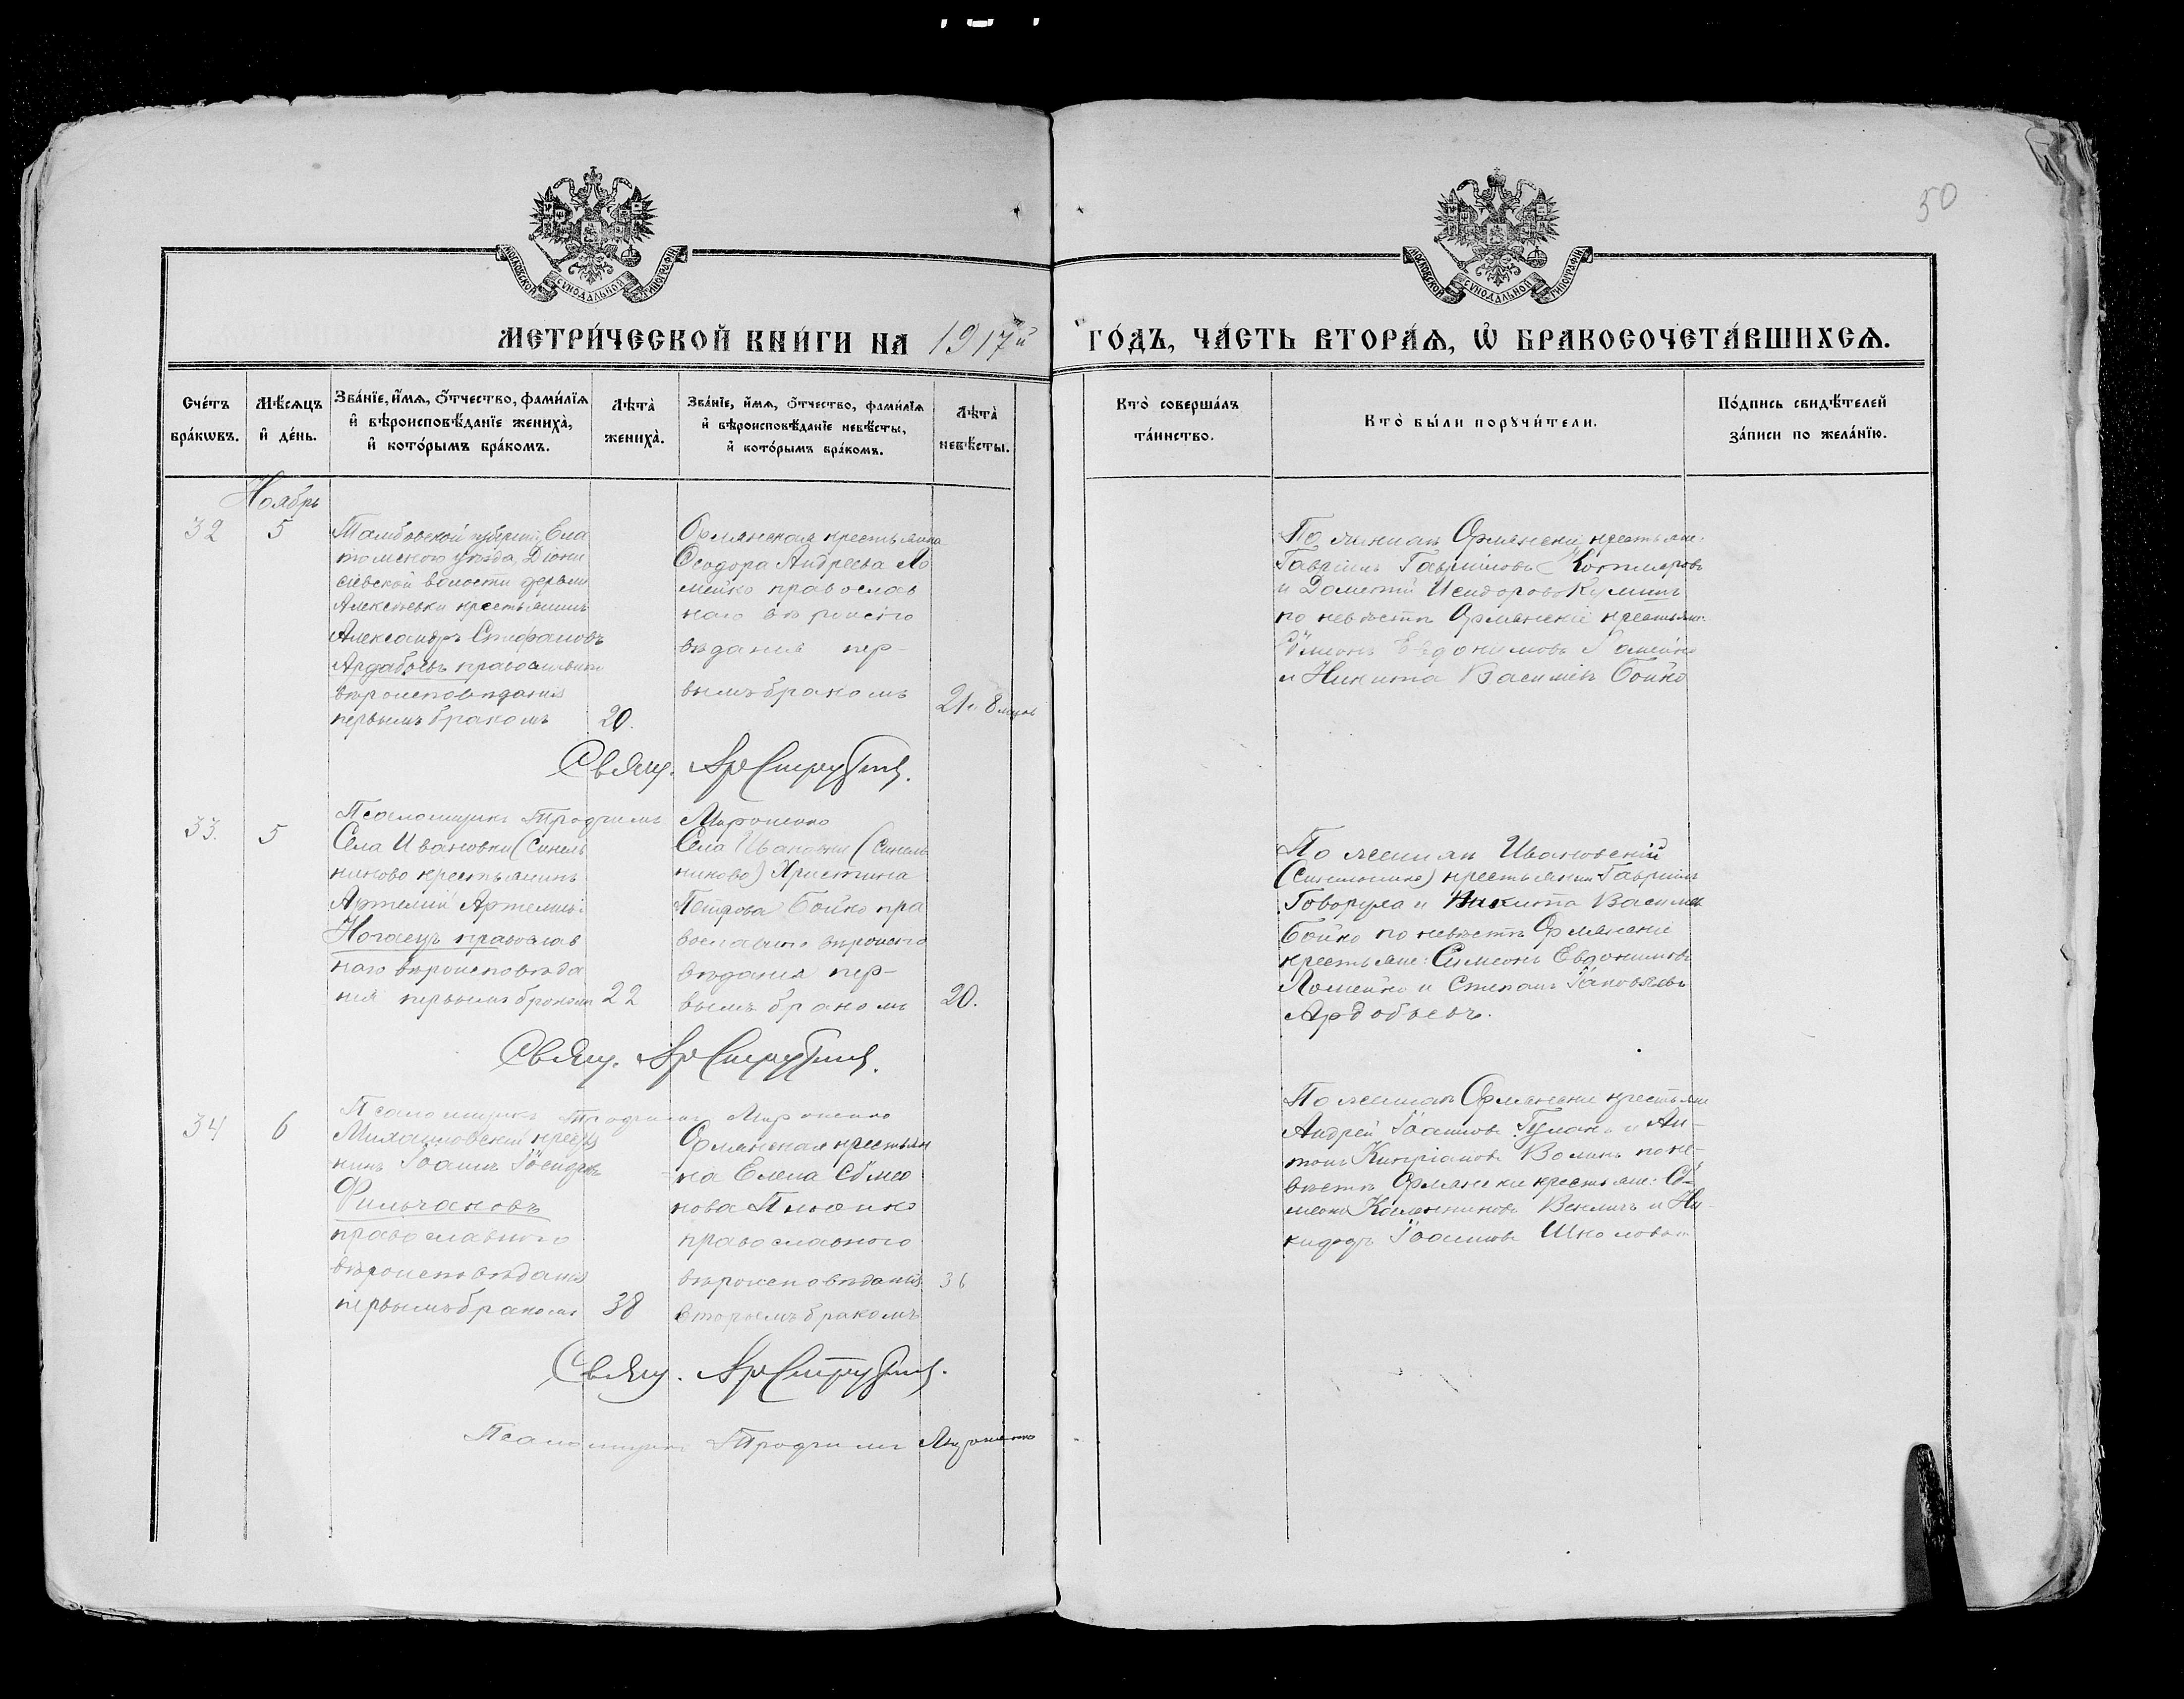 50
МОСКОВСКОЙ СУНОДАЛЬНОЙ ТИПОГРАФІИ
МОСКОВСКОЙ СУНОДАЛЬНОЙ ТИПОГРАФІИ
МЕТРИ́ЧЕСКОЙ КНИ́ГИ НА 1917й ГО́ДЪ, ЧА́СТЬ ВТОРА́Ѧ, Ѽ БРАКОСОЧЕТА́ВШИХСѦ.
Сче́тъ бра́кѡвъ.
Мѣ́сѧцъ и҆ де́нь.
Зва́нїе, и҆́мѧ, ѻ҆́тчество, фами́лїѧ
и҆ вѣроисповѣ́данїе жениха̀,
и҆ кото́рымъ бра́комъ.
Лѣта̀ жениха̀.
Зва́нїе, и҆́мѧ, ѻ҆́тчество, фами́лїѧ
и҆ вѣроисповѣ́данїе невѣ́сты,
и҆ кото́рымъ бра́комъ.
Лѣта̀ невѣ́сты.
Кто̀ соверша́лъ
та́инство.
Кто̀ бы́ли порꙋчи́тели.
По́дпись свидѣ́телей
за́писи по жела́нїю.
Ноябрь
32
5
Тамбовской губерніи, Ела
томскаго уѣзда, Діони
сіевской волости
Алексѣевки крестьянинъ
Александръ Стефановъ
Ардабьевъ православнаго
вѣроисповѣданія
первымъ бракомъ
20.
Орлянская крестьянка
Ѳеодора Андреева Ло
мейко православ
наго вѣроиспо
вѣданія пер-
вымъ бракомъ
21 и 8 мцевъ
По женихѣ Орлянскіе крестьяне:
Гавріилъ Гавріиловъ
и Дометій Исидоровъ
по невѣстѣ Орлянскіе крестьяне:
Сѵмеонъ Евдокимовъ Ломейко
и Никита Василіевъ Бойко
Свящ. Ар Струтин.
Псаломщикъ Трофимъ Мироненко
33.
5
Села Ивановки (Синель
никово крестьянинъ
Артемій Артеміевъ
Ногаецъ православ
наго вѣроисповѣда
нія первымъ бракомъ
22
Села Ивановки (Синель
никово) Христина
Петрова Бойко пра
вославнаго вѣроиспо
вѣданія пер-
вымъ бракомъ
20.
По женихѣ Ивановскій
(Синельниково) крестьянинъ Гавріилъ
Говоруха и Никита Василіев
Бойко по невѣстѣ Орлянскіе
крестьяне: Симеонъ Евдокимовъ
Ломейко и Степанъ Іаковлевъ
Ардобьевъ.
Свящ. Ар Струтин.
Псаломщикъ Трофимъ Мироненко
34
6
Михайловскій крестья
нинъ Іоаннъ Іосифовъ
Фильчаковъ
православнаго
вѣроисповѣданія
первымъ бракомъ
38
Орлянская крестьян
ка Елена Сѵмео
нова
православнаго
вѣроисповѣданія
вторымъ бракомъ
36
По женихѣ Орлянскіе крестьяне
Андрей Іоанновъ и Ан-
тонъ Кипріановъ по не-
вѣстѣ Орлянскіе крестьяне: Сѵ-
меонъ и Ни-
кифоръ Іоанновъ
Свящ. Ар Струтин.
Псаломщикъ Трофимъ Мироненко